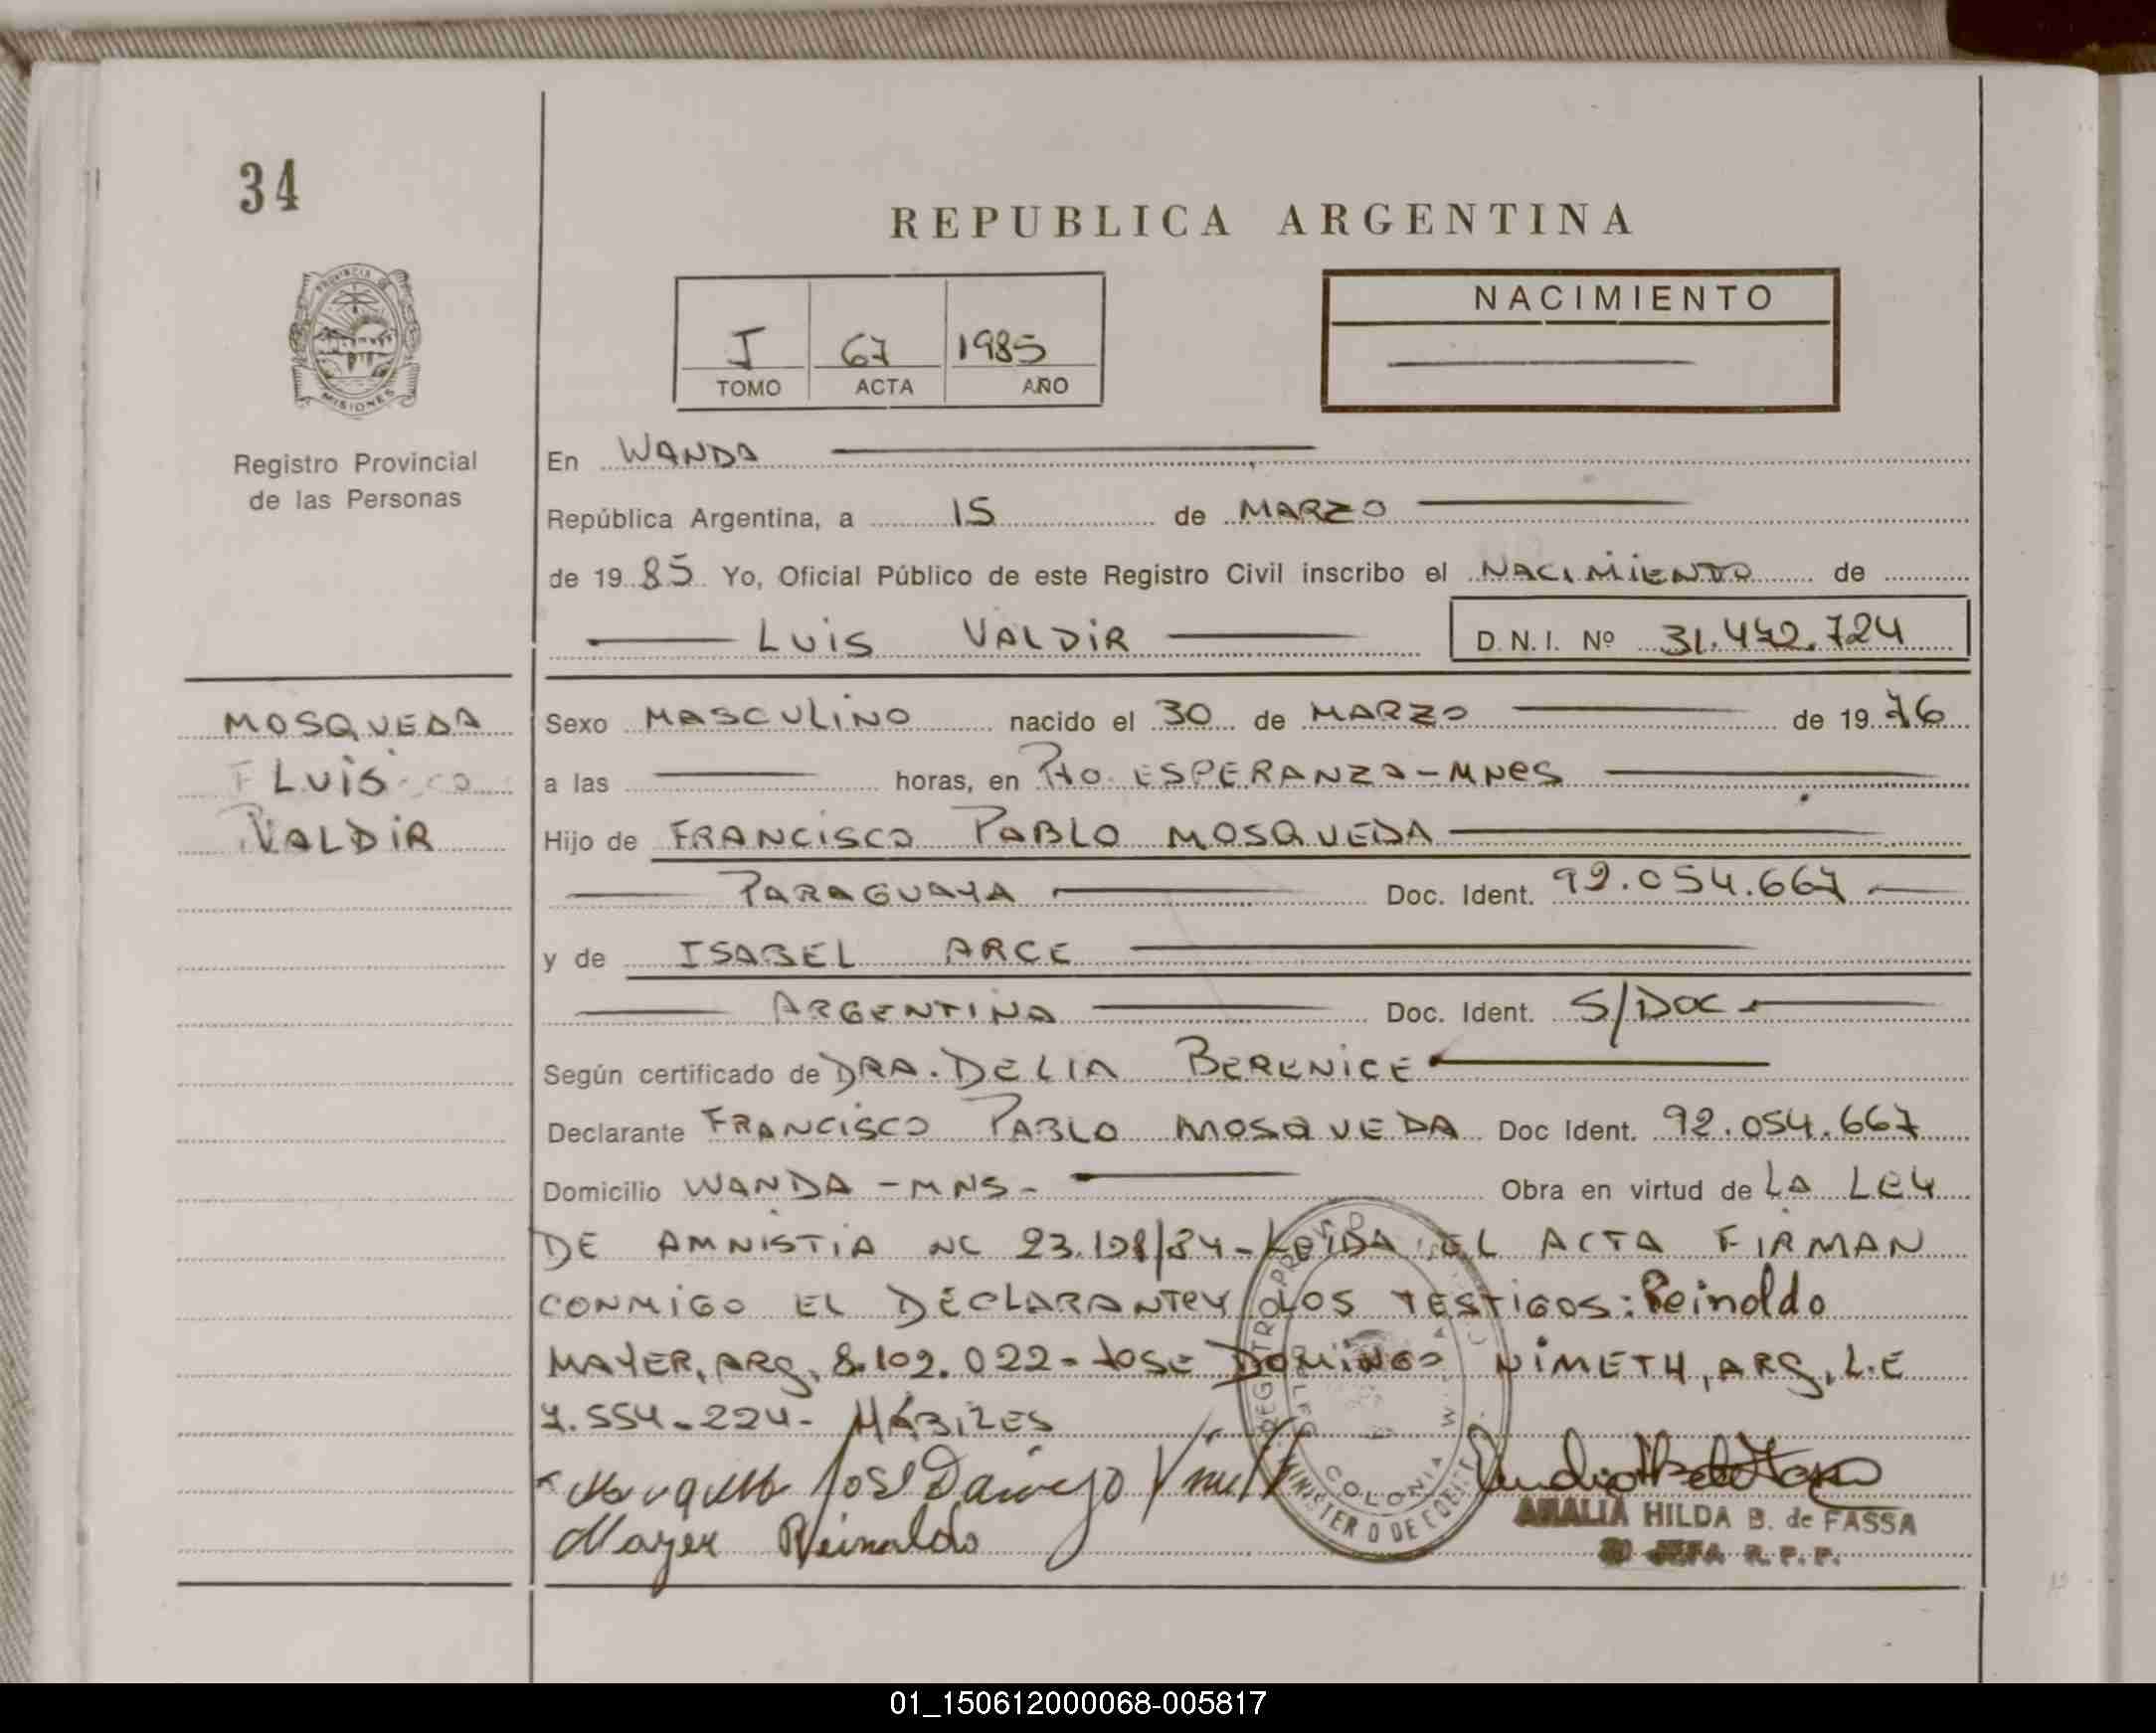 34
REPUBLICA ARGENTINA
PROVINCIA DE
MISIONES
Registro Provincial
de las Personas
I 67 1985
TOMO ACTA AÑO
NACIMIENTO
En WANDA
República Argentina, a 15 de MARZO
de 1985 Yo, Oficial Público de este Registro Civil inscribo el NACIMIENTO de
LUIS VALDIR D.N.I. Nº 31.442.724
MOSQUEDA
LUIS
VALDIR
Sexo MASCULINO nacido el 30 de MARZO de 1976
a las horas, en Pto. ESPERANZA-MNES
Hijo de FRANCISCO PABLO MOSQUEDA
PARAGUAYA Doc. Ident. 92.054.667
y de ISABEL ARCE
ARGENTINA Doc. Ident. S/DOC
Según certificado de DRA. DELIA BERENICE
Declarante FRANCISCO PABLO MOSQUEDA Doc Ident. 92.054.667
Domicilio WANDA -MNS- Obra en virtud de LA LEY
DE AMNISTIA 23.128/84- LEIDA EL ACTA FIRMAN
CONMIGO EL DECLARANTE Y LOS TESTIGOS: Reinoldo
MAYER, ARG, 8.109.022- JOSE DOMINGO NIMETH, ARG, L.E
7.554-224- HÁBILES
Mayer Reinaldo
COLONIA W
AMALIA HILDA B. de FASSA
JEFA R.P.P.
01_150612000068-005817